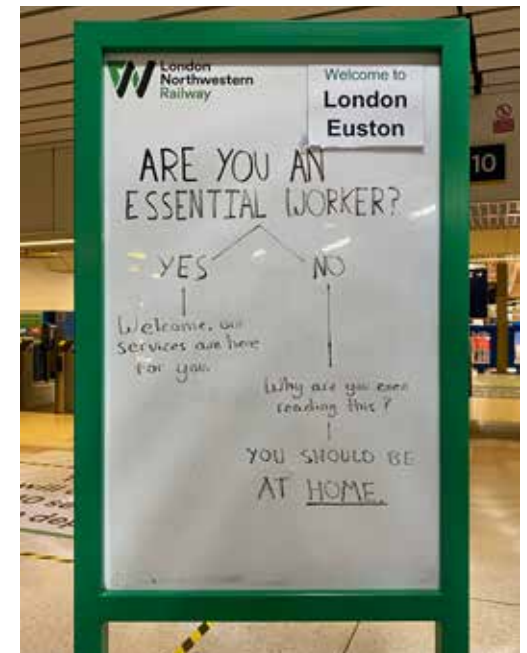 London
Northwestern
Railway
Welcome to
London
Euston
10
ARE YOU AN
ESSENTIAL WORKER?
YES
NO
Welcome, our
services are here
for you.
Why are you even
reading this?
YOU SHOULD BE
AT HOME.
will